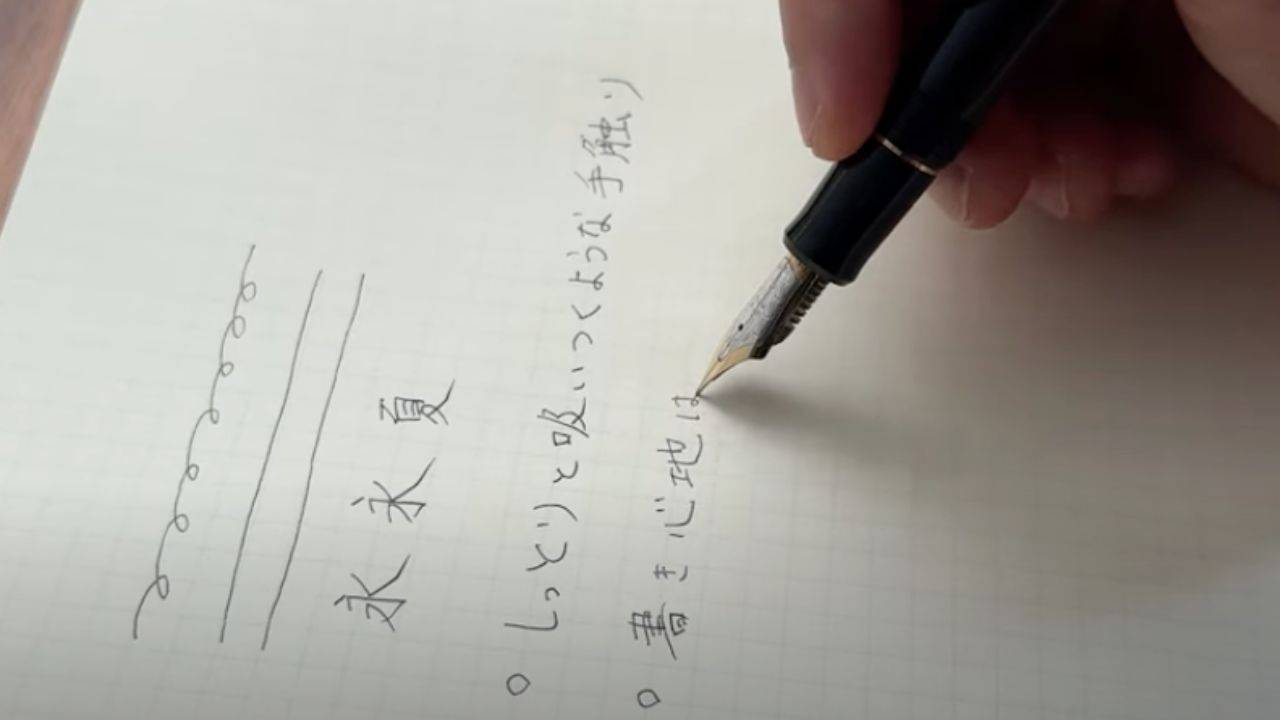 永永夏
○しっとりと吸いつくような手触り
○書き心地は